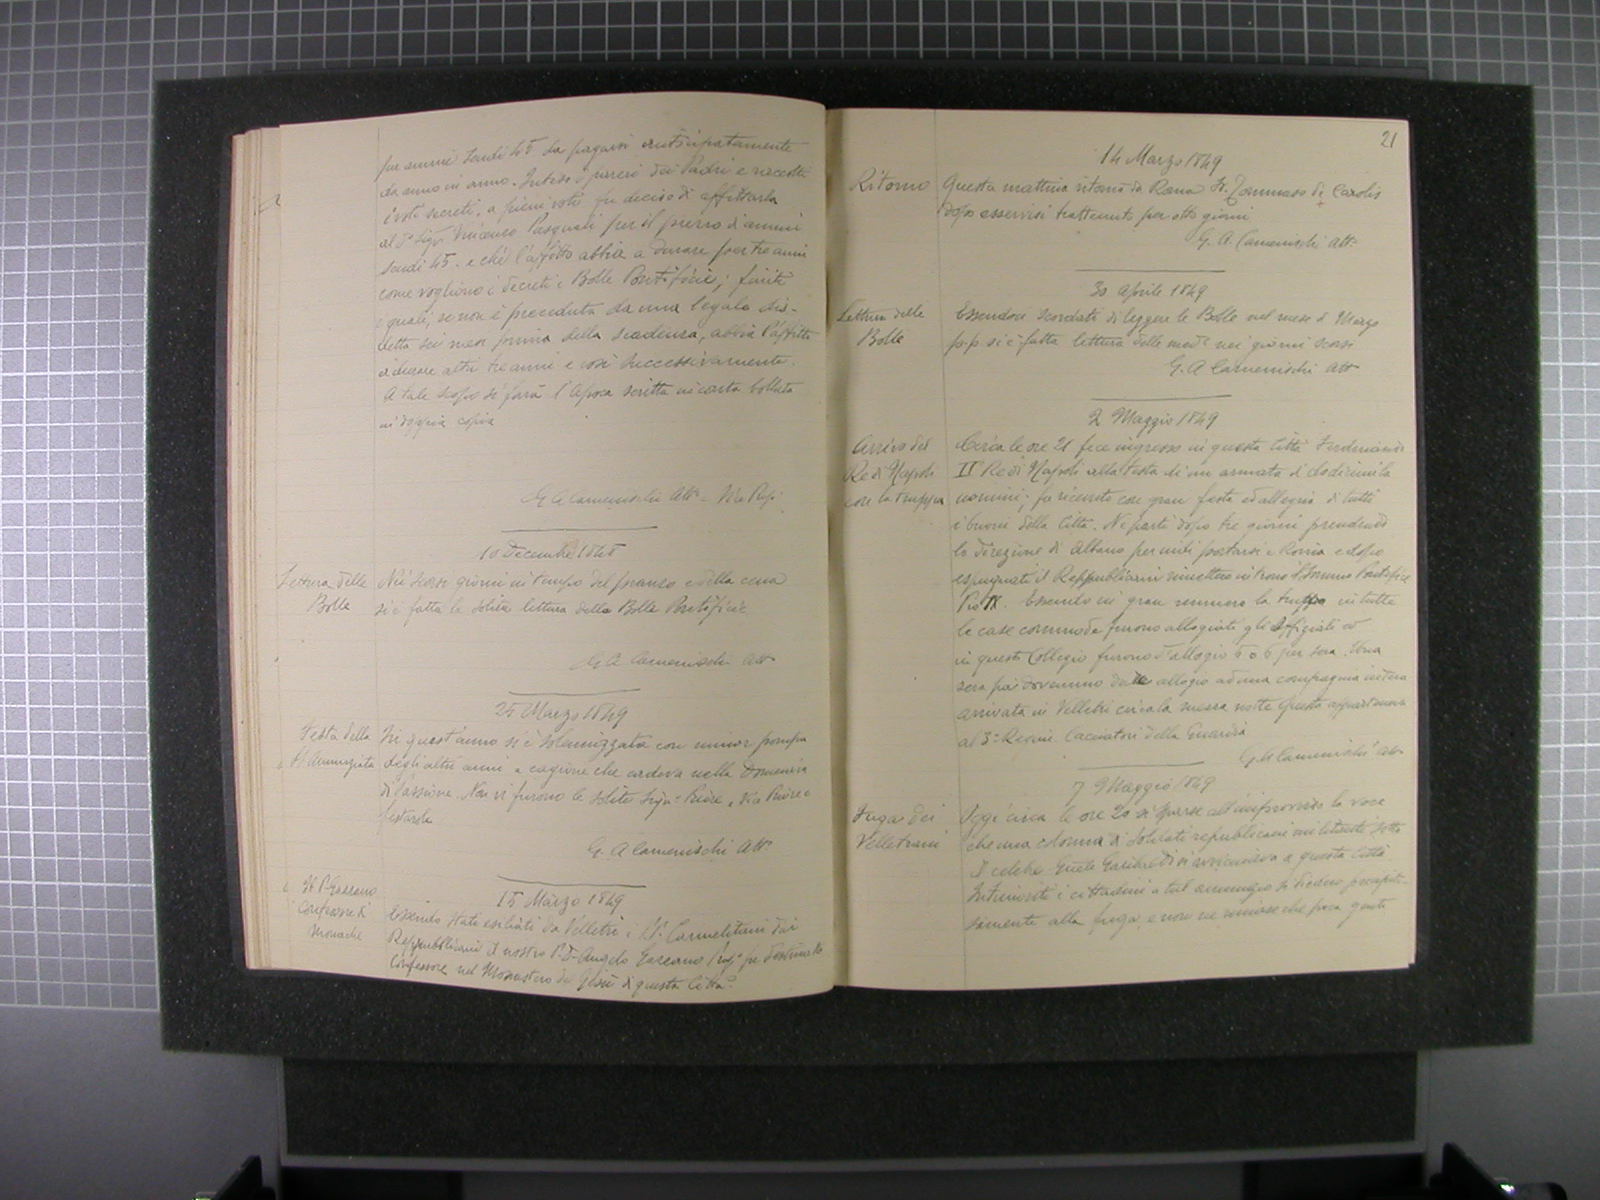 per annui scudi 45 da pagarsi anticipatamente
da anno in anno. Inteso i pareri dei Padri e raccolti
i voti secreti, a pieni voti fu deciso di affittarla
al Sigr Vincenzo Pasquali per il prezzo di annui
scudi 45. e che l'affitto abbia a durare per tre anni
come vogliono i decreti e Bolle Pontificie; finiti
i quali, se non è preceduta da una legale dis-
detta sei mesi prima della scadenza, abbia l'affitto
a durare altri tre anni e così successivamente.
A tale scopo si farà l'Apoca scritta in carta bollata
in doppia copia
G A Camenischi Att
10 Decembre
Lettura delle
Bolle
Nei scorsi giorni in tempo del pranzo e della cena
si è fatta la solita lettura della Bolle Pontificie
G A Camenischi Att
25 Marzo 1849
Festa della
SS. Annunziata
In quest'anno si è solennizzata con minor pompa
degli altri anni a cagione che cadeva nella Domenica
di Passione. Non vi furono le solite Sign. Priore, Via Priore e
festarole
G. A Camenischi Att
15 Marzo 1849
Il P. Gassano
confessore di
Monache
Essendo stati esiliati da Velletri i PP. Carmelitani dai
Reppubblicani il nostro P. D. Angelo Gassano fu destinato
Confessore nel Monastero del Gesù di questa Città.
21
14 Marzo 1849
Ritorno
Questa mattina ritornò da Roma Fr. Tommaso di Carolis
dopo esservisi trattenuto per otto giorni
G. A. Camenischi Att
30 Aprile 1849
Lettura delle
Bolle
Essendosi scordati di leggere le Bolle nel mese di Marzo
p.p. si è fatta lettura delle med nei giorni scorsi
G. A Camenischi Att
2 Maggio 1849
Arrivo del
Re di Napoli
con la truppa
Circa le ore 21 fece ingresso in questa Città Ferdinando
II Re di Napoli alla testa di un armata di dodicimila
uomini; fu ricevuto con gran festa ed allegria di tutti
i buoni della Città. Ne partì dopo tre giorni prendendo
la direzione di Albano per indi portarsi a Roma e dopo
espugnati i Reppublicani rimettere in trono il Sommo Pontefice
Pio IX. Essendo in gran numero la truppa in tutte
le case commode furono allogiati gli Uffiziali ed
in questo Collegio furono d'allogio 5 o 6 per sera. Una
sera poi dovemmo dare allogio ad una compagnia intera
arrivata in Velletri circa la mezza notte. Questa apparteneva
al 3° Regim. Cacciatori della Guardia
G. A Camenischi Att
7 Maggio 1849
Fuga dei
Velletrani
Oggi circa le ore 20 si sparse all'improvviso la voce
che una colonna di soldati republicani militanti sotto
il celebre Garibaldi si avvicinava a questa Città
Intimoriti i cittadini a tal annunzio si diedero precipito-
samente alla fuga, e non ne rimase che poca gente